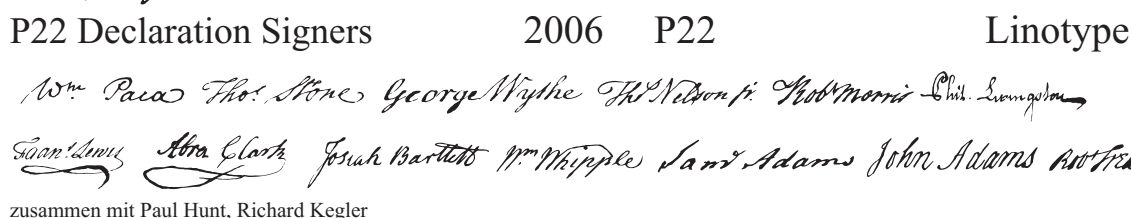 P22 Declaration Signers 2006 P22 Linotype
Wm Paca Thos Stone George Wythe Thos Nelson jr. Robt Morris Phil. Livingston
Frans. Lewis Abra Clark Josiah Bartlett Wm Whipple Saml Adams John Adams
zusammen mit Paul Hunt, Richard Kegler